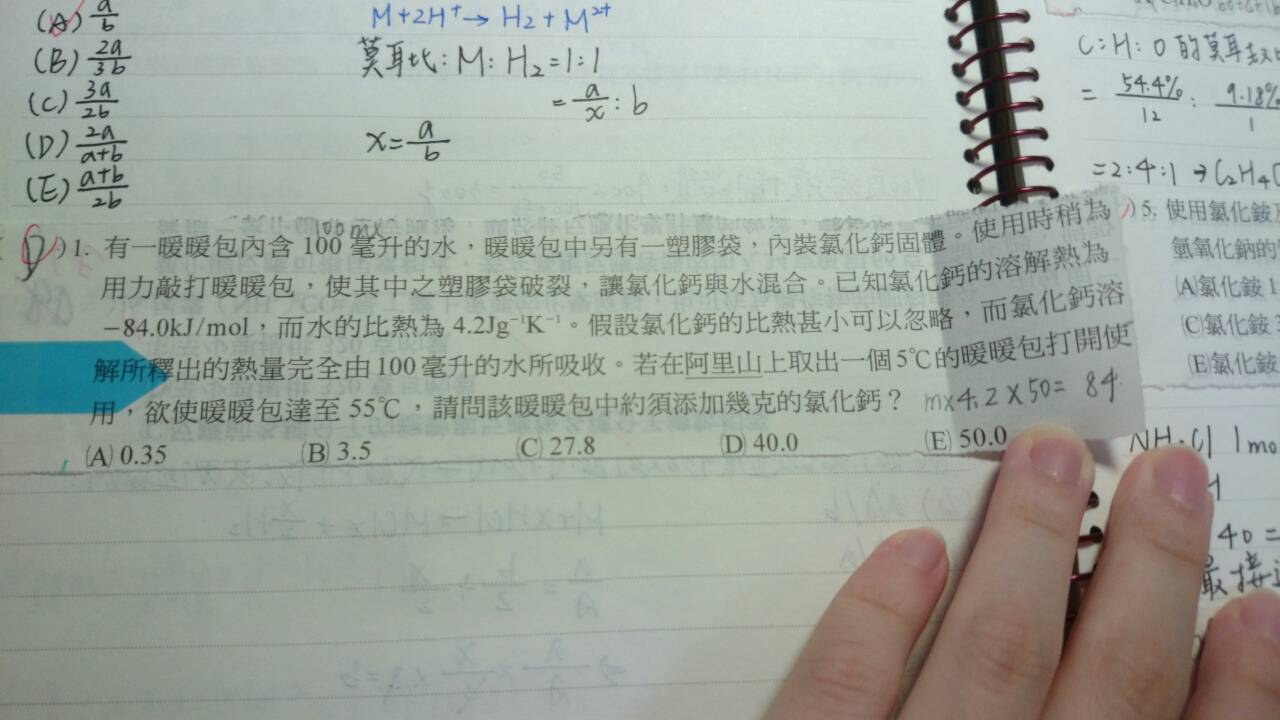 (A) a/b
M+2H⁺→ H₂+M²⁺
(B) 2a/3b
莫耳比:M:H₂=1:1
(C) 3a/2b
= a/x : b
(D) 2a/a+b
x= a/b
(E) a+b/2b
100 mx
D )1. 有一暖暖包內含 100 毫升的水,暖暖包中另有一塑膠袋,內裝氯化鈣固體。使用時稍為
用力敲打暖暖包,使其中之塑膠袋破裂,讓氯化鈣與水混合。已知氯化鈣的溶解熱為
−84.0kJ/mol,而水的比熱為 4.2Jg⁻¹K⁻¹。假設氯化鈣的比熱甚小可以忽略,而氯化鈣溶
解所釋出的熱量完全由 100 毫升的水所吸收。若在阿里山上取出一個 5℃的暖暖包打開使
用,欲使暖暖包達至 55℃,請問該暖暖包中約須添加幾克的氯化鈣?
m×4.2×50= 84
(A) 0.35 (B) 3.5 (C) 27.8 (D) 40.0 (E) 50.0
C:H:O 的莫耳
= 54.4%/12 : 9.18%/1
=2:4:1 → C₂H₄O
)5. 使用氯化銨
氫氧化鈉的
(A)氯化銨 1
(C)氯化銨
(E)氯化銨
NH₄Cl 1mo
40 =
最接近